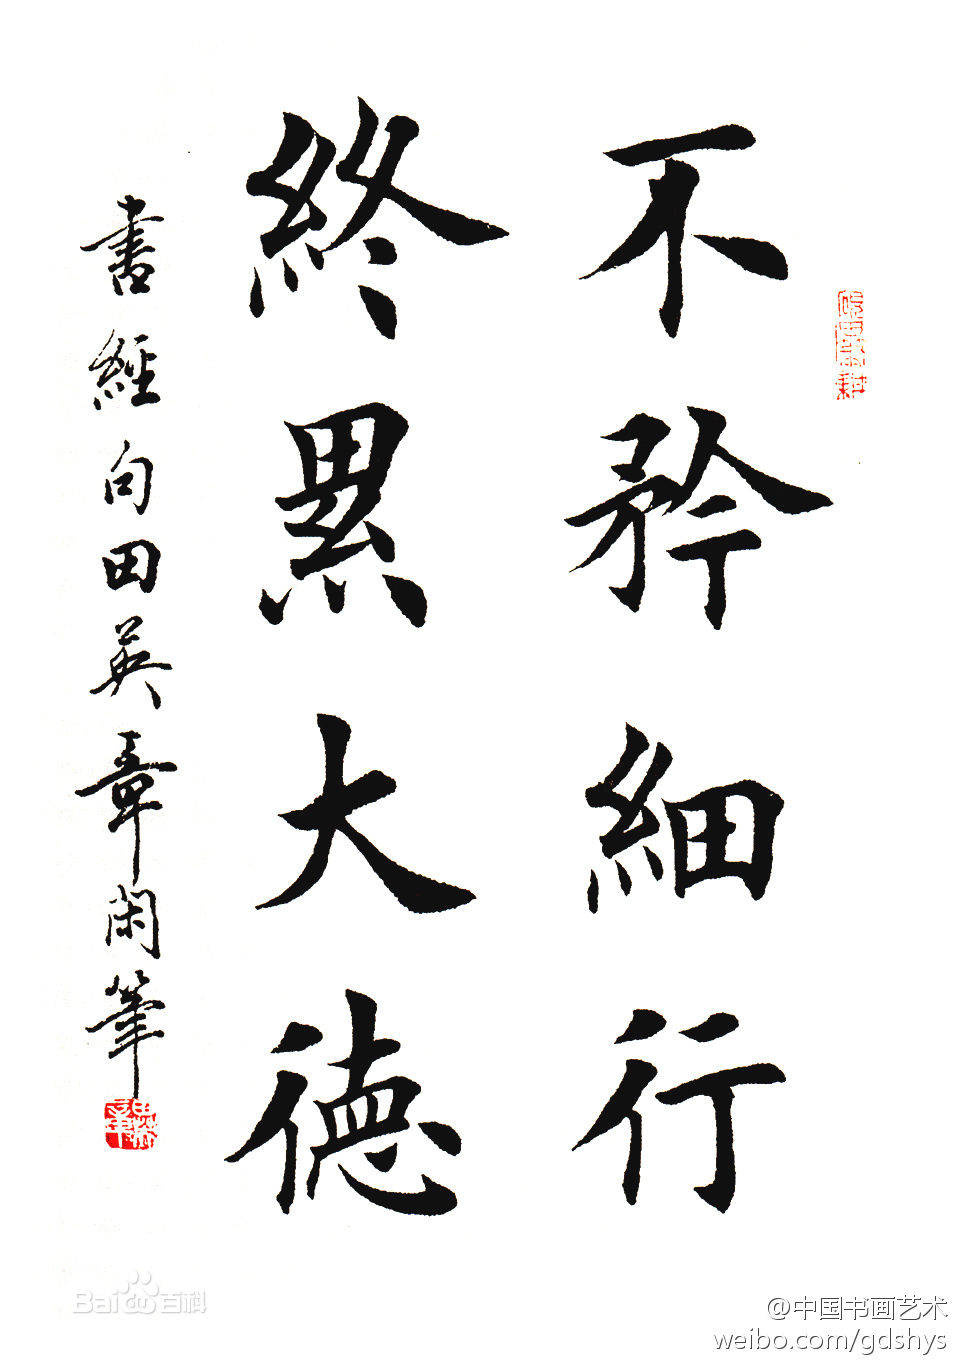 不矜細行
終累大德
書經句田英章閑筆
Baidu百科
@中国书画艺术
weibo.com/gdshys